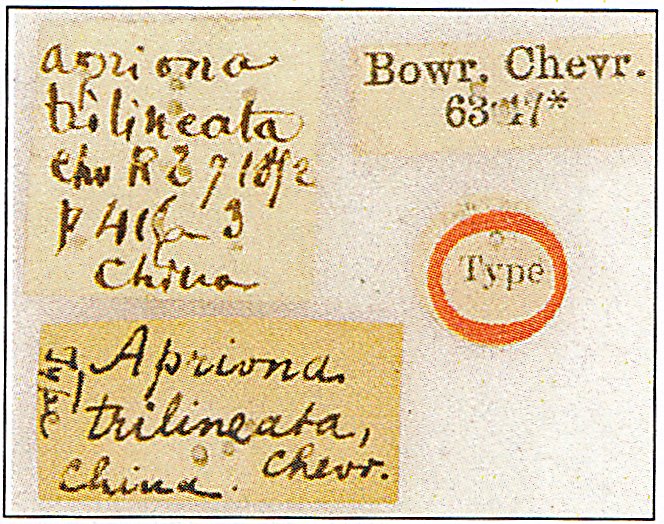 apriona
trilineata
Chv R Z 7 1852
p 416 3
China
Bowr. Chevr.
63·47*
Type
Apriona
trilineata,
Chevr.
China.